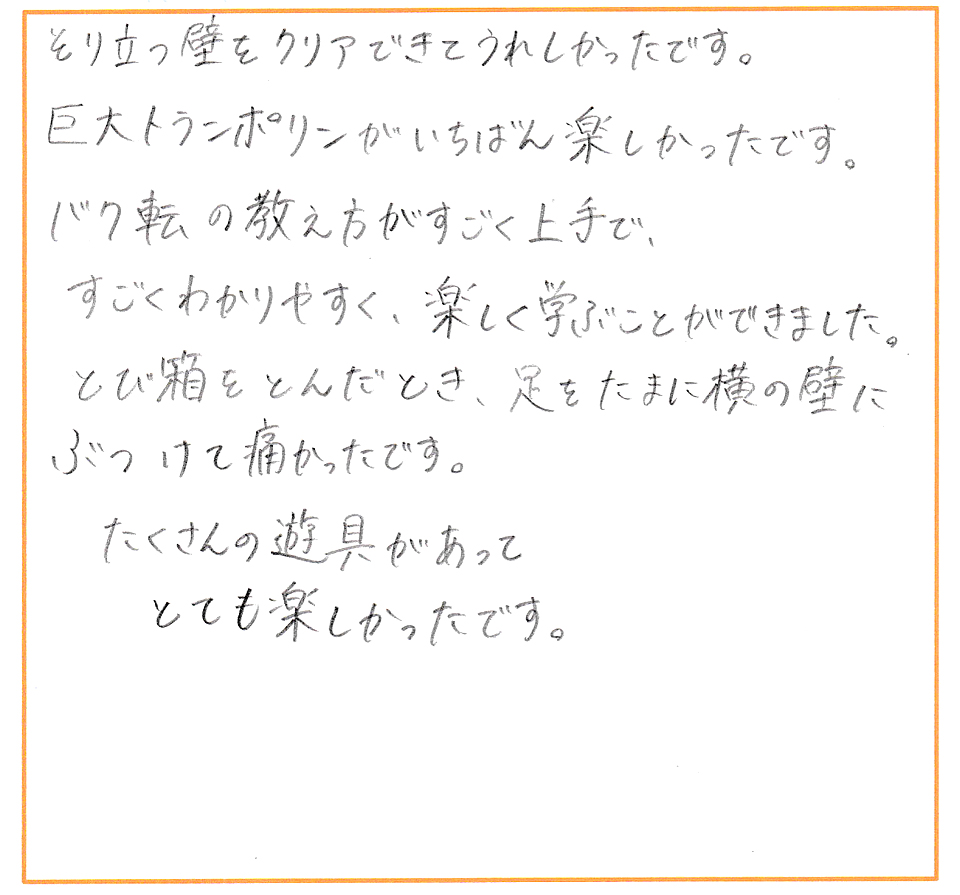 そり立つ壁をクリアできてうれしかったです。
巨大トランポリンがいちばん楽しかったです。
バク転の教え方がすごく上手で、
すごくわかりやすく、楽しく学ぶことができました。
とび箱をとんだとき、足をたまに横の壁に
ぶつけて痛かったです。
たくさんの遊具があって
とても楽しかったです。